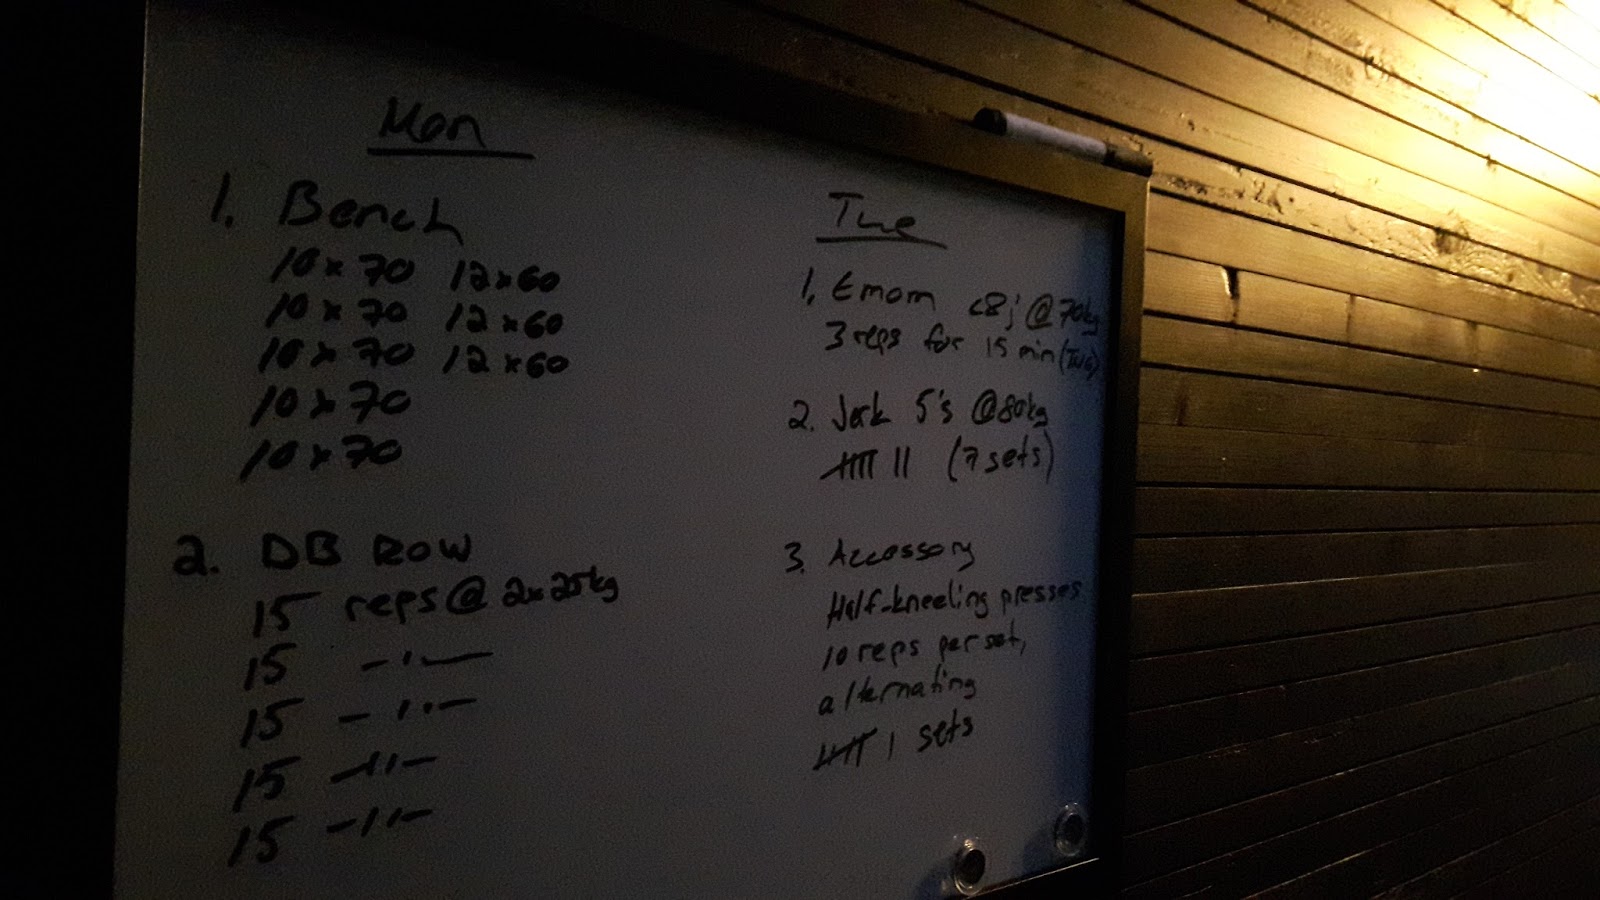 Mon
1. Bench
10 x 70 12 x 60
10 x 70 12 x 60
10 x 70 12 x 60
10 x 70
10 x 70
2. DB ROW
15 reps @ 2x25kg
15 -"-
15 -"-
15 -"-
15 -"-
Tue
1. Emom c&j @ 70kg
3 reps for 15 min
2. Jerk 5's @80kg
卌 || (7 sets)
3. Accessory
Half-kneeling presses
10 reps per set,
alternating
卌 | sets